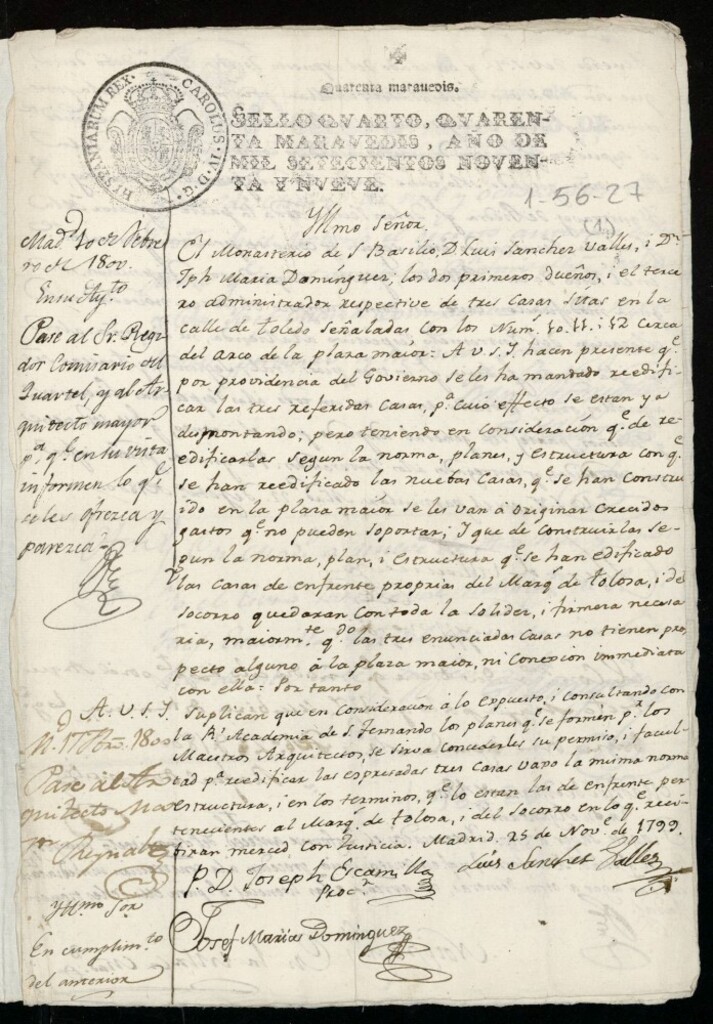 HISPANIARUM REX. CAROLUS. IV. D. G.
Quarenta maravedis.
SELLO QVARTO, QVAREN-
TA MARAVEDIS, AÑO DE
MIL SETECIENTOS NOVEN-
TA Y NVEVE.
1-56-27
(1)
Yllmo Señor.
El Monasterio de S. Basilio, D. Luis Sanchez Valles, i Dn.
Jph Maria Domínguez, los dos primeros dueños, i el terce
ro administrador respective de tres Casas sitas en la
calle de toledo señaladas con los Num.s 10. 11. i 12 cerca
del arco de la plaza maior: A V. S. I. hacen presente q.e
por providencia del Govierno se les ha mandado reedifi
car las tres referidas Casas, p.a cuio effecto se estan ya
desmontando; pero teniendo en consideración q.e de re-
edificarlas segun la norma, planes, y estructura con q.e
se han reedificado las nuebas Casas, q.e se han constru
ido en la plaza maior se les van á originar crecidos
gastos q.e no pueden soportar; I que de construirlas se-
gun la norma, plan, i estructura q.e se han edificado
las Casas de enfrente proprias del Marq.s de tolosa, i de
socorro quedaran con toda la solidez, i firmeza necesa
ria, maiorm.te q.do las tres enunciadas Casas no tienen pros
pecto alguno á la plaza maior, ni conexion immediata
con ella: Por tanto
A. V. S. I. Suplican que en consideracion á lo expuesto, i consultando con
la R.l Academia de S. Fernando los planes q.e se formen p.r los
Maestros Arquitectos, se sirva concederles su permiso, i facul
tad p.a reedificar las expresadas tres Casas vaxo la misma norma
estructura, i en los terminos, q.e lo estan las de enfrente per
tenecientes al Marq.s de tolosa, i del Socorro en lo q.e reci-
biran merced con Justicia. Madrid 25 de Nov.e de 1799.
P. D. Joseph Escamilla
Proc.r
Luis Sanchez Valles
Josef Marias Dominguez
Mad.d 10 de Febre
ro de 1800.
En su Ay.to
Pase al Sr. Regi
dor Comisario del
Quartel, y al Ar
quitecto mayor
p.a q.e en su vista
informen lo q.e
se les ofrezca y
parezca
Pase al Ar
quitecto Ma
Yllmo Sor
En cumplim.to
del anterior